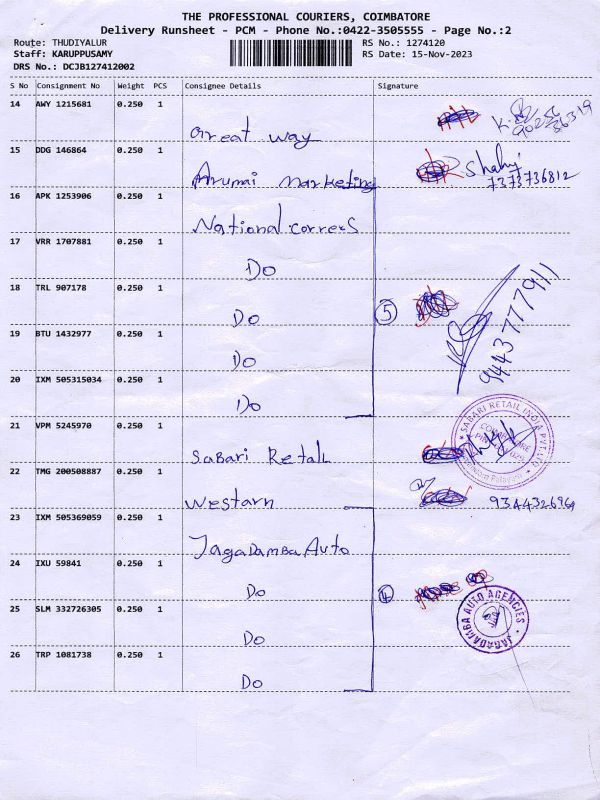 THE PROFESSIONAL COURIERS, COIMBATORE
Delivery Runsheet - PCM - Phone No.:0422-3505555 - Page No.:2
Route: THUDIYALUR RS No.: 1274120
Staff: KARUPPUSAMY RS Date: 15-Nov-2023
DRS No.: DCJB127412002
S No Consignment No Weight PCS Consignee Details Signature
14 AWY 1215681 0.250 1
Great way
15 DDG 146864 0.250 1
Arumai Marketing Shahj
7373736812
16 APK 1253906 0.250 1
National correrS
17 VRR 1707881 0.250 1
Do
18 TRL 907178 0.250 1
Do 5 9443777911
19 BTU 1432977 0.250 1
Do
20 IXM 505315034 0.250 1
Do
21 VPM 5245970 0.250 1
Sabari Retail SABARI RETAIL INDIA PVT LTD
COIMBATORE
22 TMG 200508887 0.250 1
Western 9344326964
23 IXM 505369059 0.250 1
Jagadamba Auto
24 IXU 59841 0.250 1
Do 4
JAGADAMBA AUTO AGENCIES
25 SLM 332726305 0.250 1
Do
26 TRP 1081738 0.250 1
Do